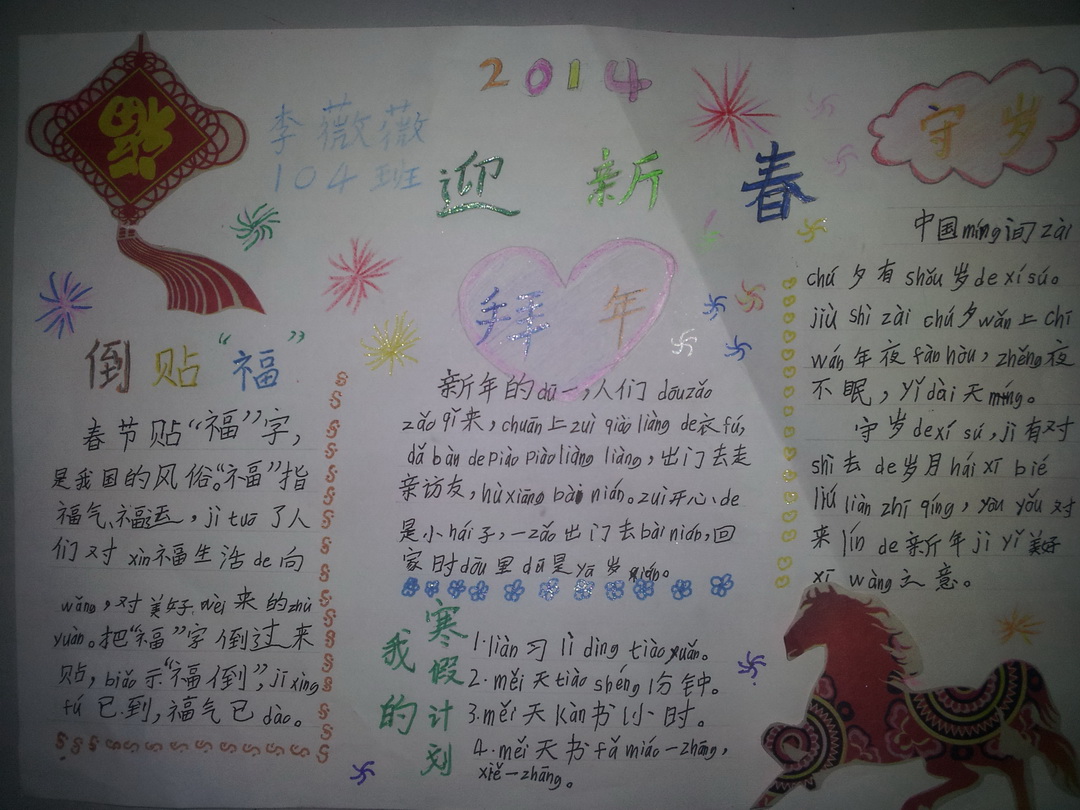 福
2014
李薇薇
104班
迎新春
守岁
拜年
倒贴“福”
春节贴“福”字,
是我国的风俗。“福”指
福气、福运, jì tuō 了人
们对 xìn福生活 de 向
wǎng, 对美好 wèi 来的 zhù
yuàn。把“福”字倒过来
贴, biǎo 示“福倒”, jí xìng
fú 已到, 福气已 dào。
新年的 dū 一, 人们 dōu zǎo
zǎo qǐ 来, chuān 上 zuì qiào liàng de 衣 fú,
dǎ bàn de piào piào liàng liàng, 出门去走
亲访友, hù xiāng bài nián。zuì 开心 de
是小 hái 子, 一 zǎo 出门去 bài nián, 回
家时 dōu 里 dū 是 yā 岁 qián。
我的寒假计划
1. liàn 习 lì dìng tiào yuǎn。
2. měi 天 tiào shéng 1分钟。
3. měi 天 kàn 书 1小时。
4. měi 天书 fǎ miáo 一 zhāng,
xiě 一 zhāng。
中国 míng 间 zài
chú 夕有 shǒu 岁 de xí sú。
jiù shì zài chú 夕 wǎn 上 chī
wán 年夜 fàn hòu, zhěng 夜
不眠, yǐ dài 天 míng。
守岁 de xí sú, jì 有对
shì 去 de 岁月 hái xī bié
liú liàn zhī qíng, yòu yǒu 对
来 lín de 新年 jì yǐ 美好
xī wàng 之意。